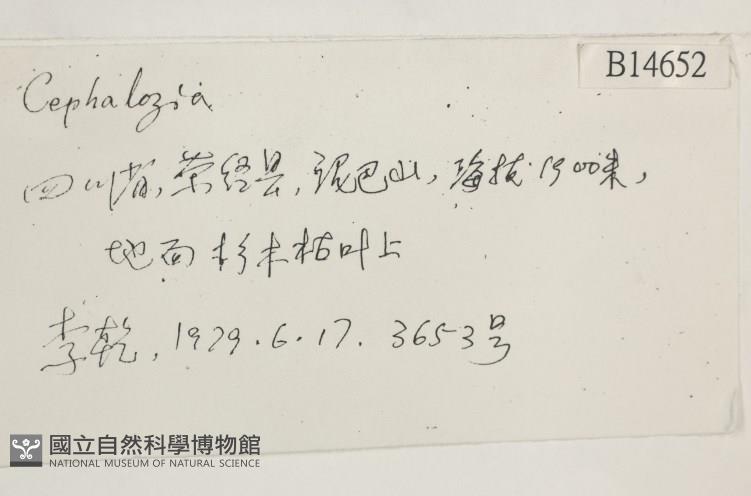 B14652
Cephalozia
四川省,荥经县,泥巴山,海拔1900米,
地面杉木枯叶上
李乾,1979.6.17. 3653号
國立自然科學博物館
NATIONAL MUSEUM OF NATURAL SCIENCE